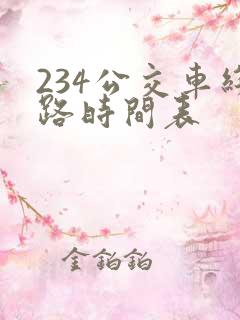 234公交車線
路時間表
金鉑鉑